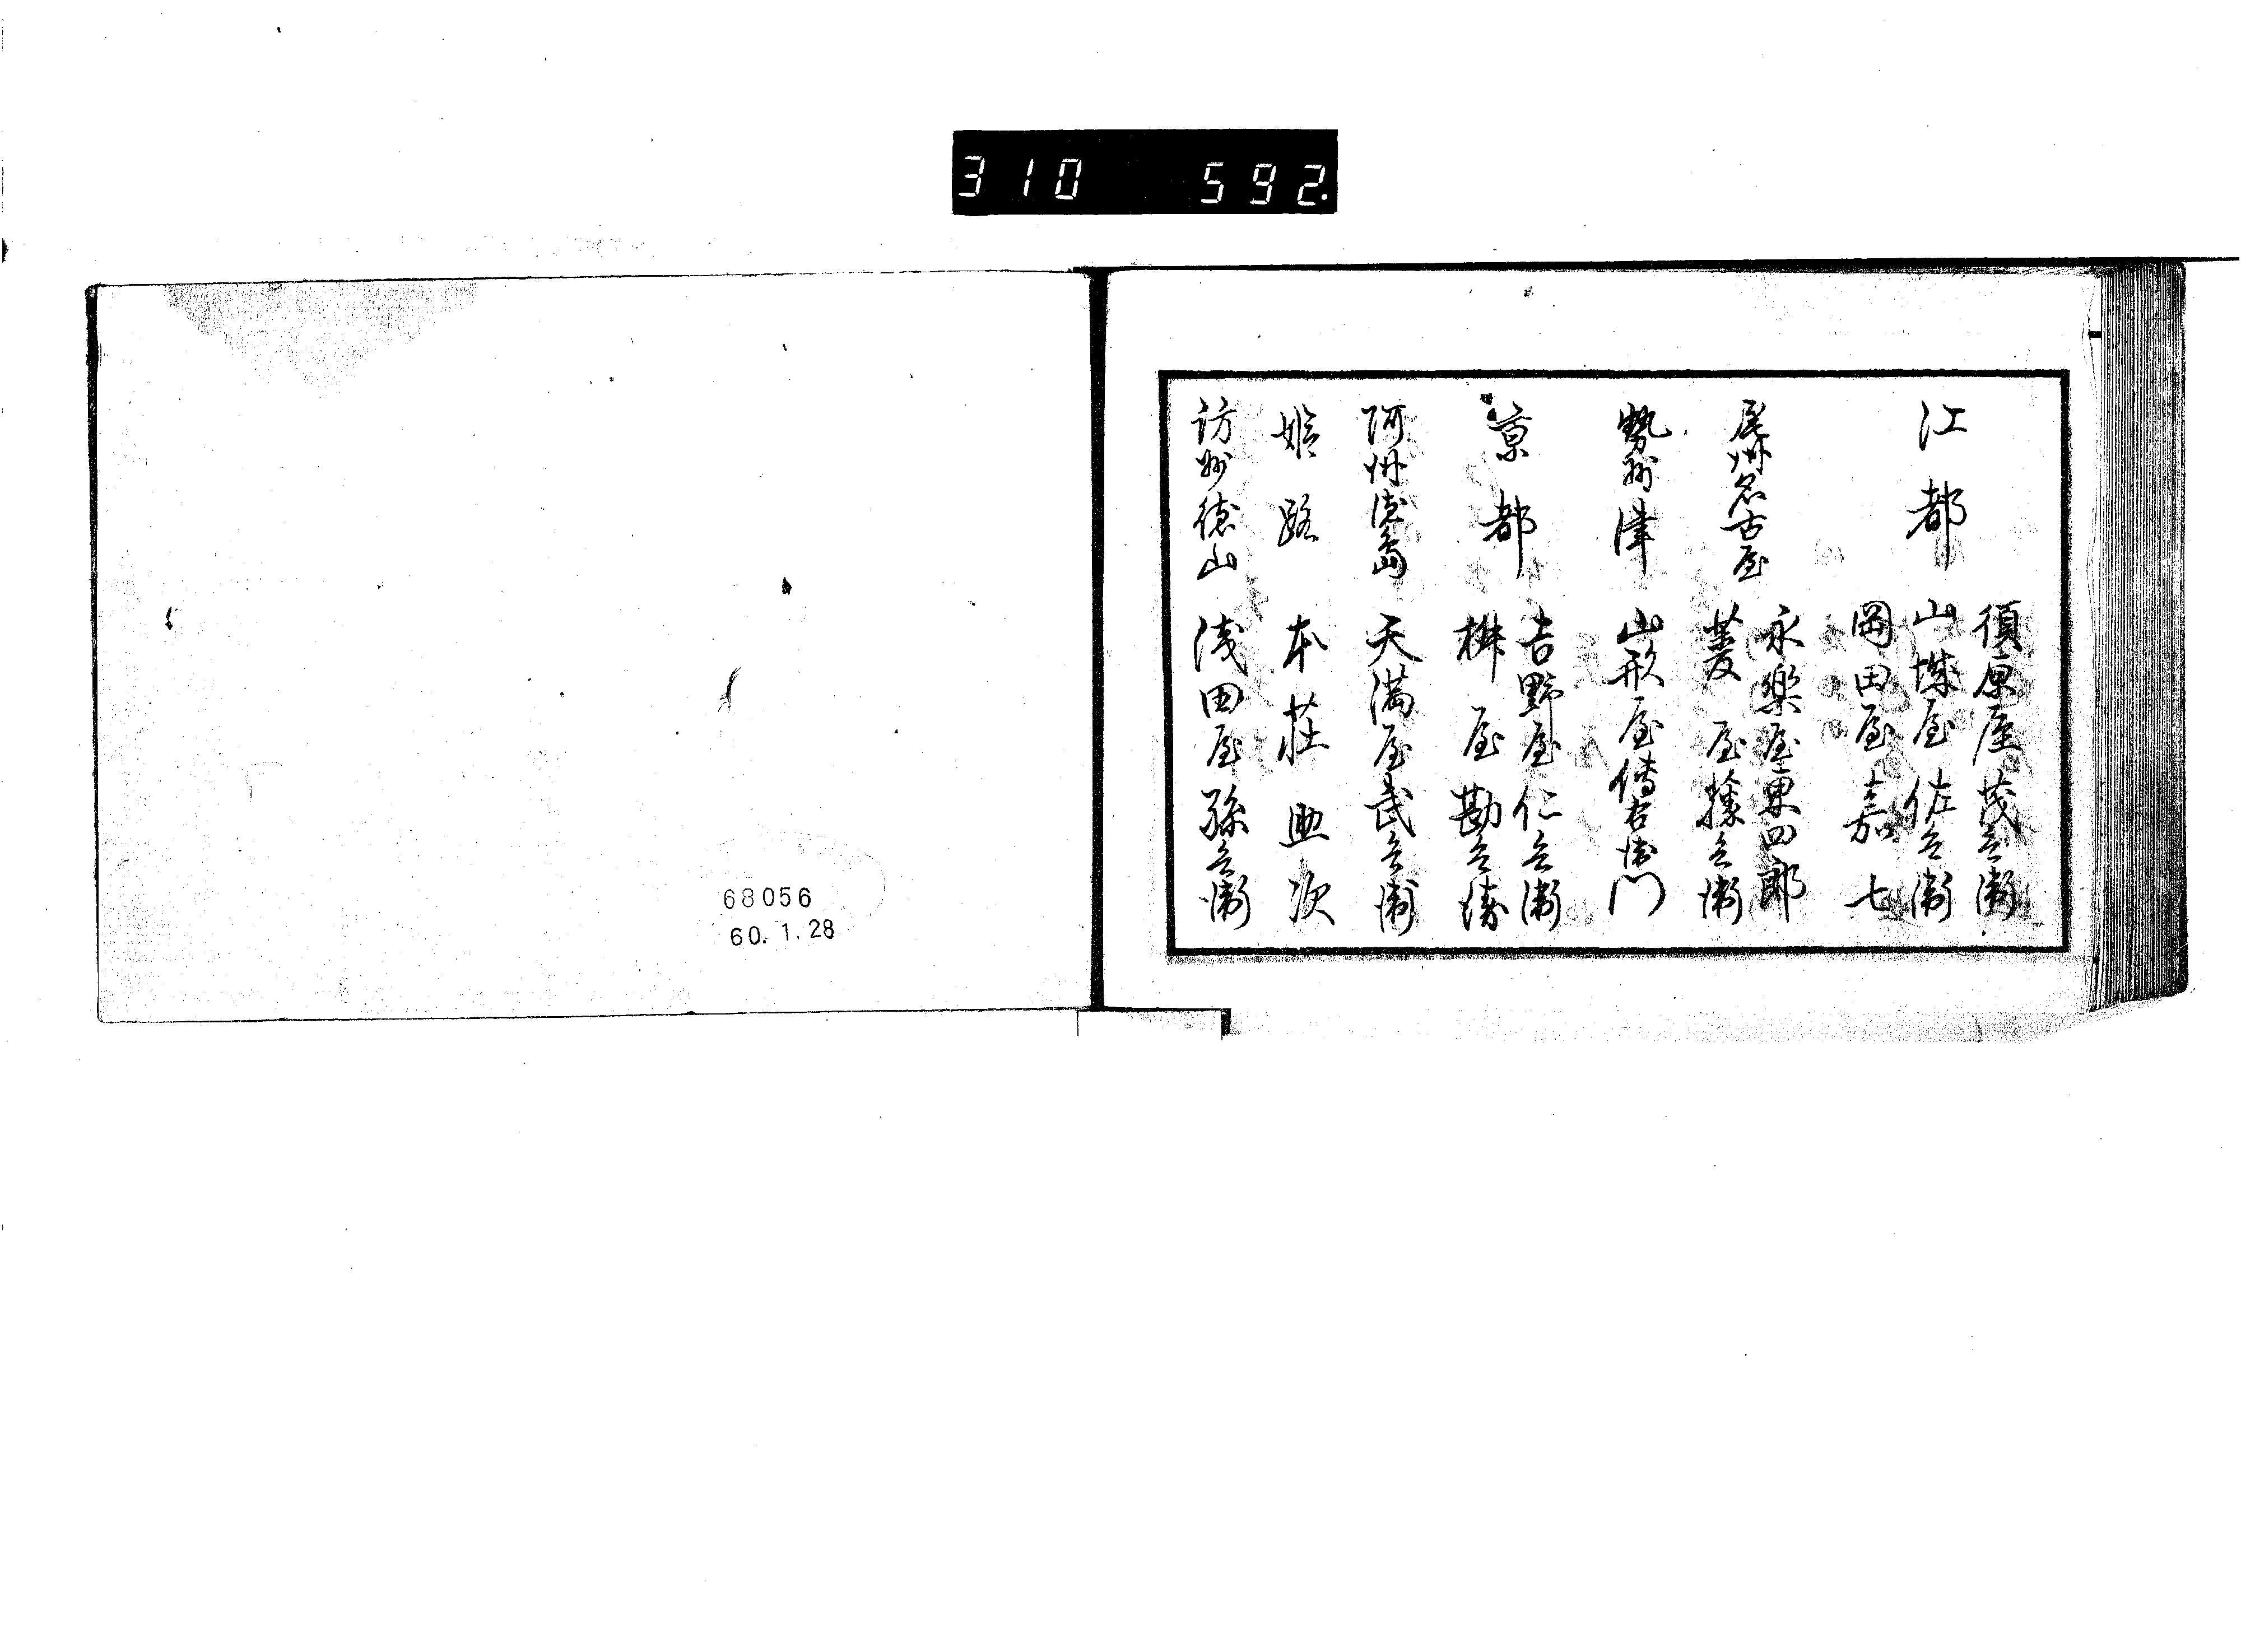 310 592.
江都
須原屋茂兵衛
山城屋佐兵衛
岡田屋嘉七
尾州名古屋
永樂屋東四郎
菱屋藤兵衛
勢州津
山形屋傳右衛門
京都
吉野屋仁兵衛
桝屋勘兵衛
阿州徳島
天満屋武兵衛
姫路
本荘
次
防州徳山
浅田屋孫兵衛
68056
60.1.28